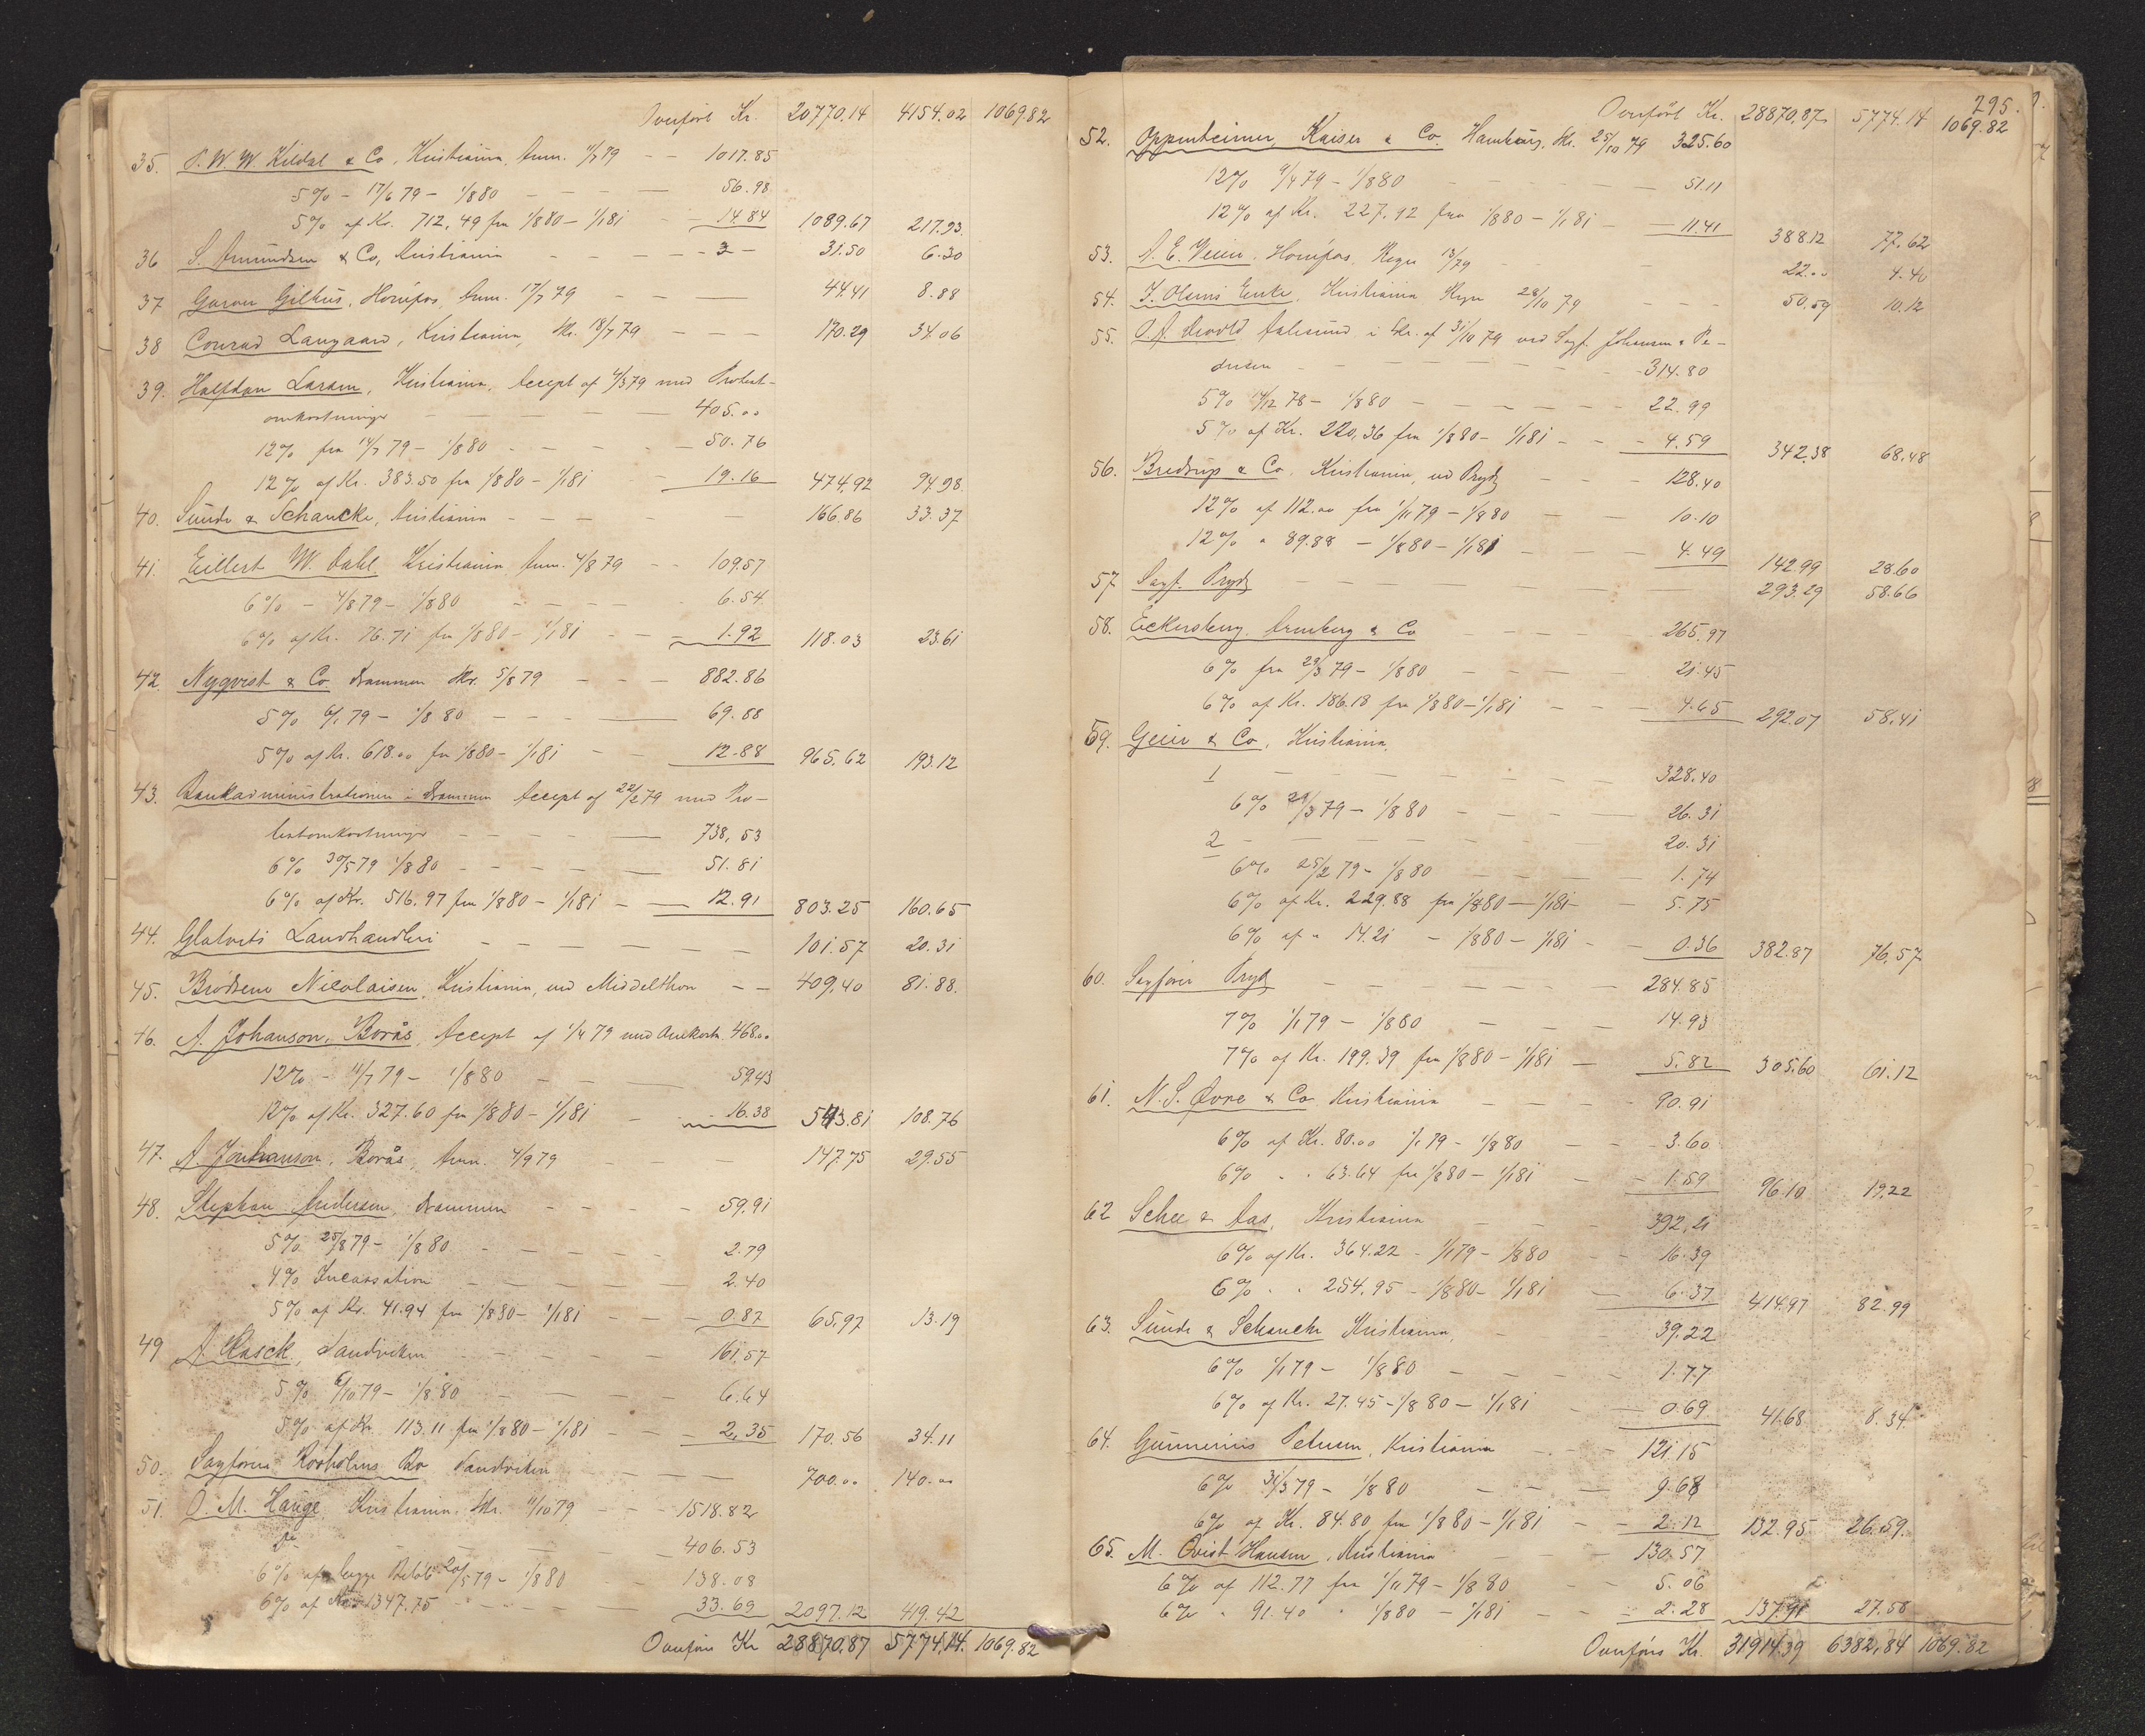 Overført Kr. 20770.14 4154.02 1069.82
35. P. W. W. Kildal & Co, Kristiania, 79 — — 1017.85
5% — 17/6 79 — 1/8 80 — — — 56.98
5% af Kr. 712,49 fra 1/8 80 — 1/1 81 — 14.84 1089.67 217.93
36 S. Amundsen & Co, Kristiania — — — — 31.50 6.30
37 Garver Gilhus, Hornfos, 17/7 79 — — — 44.41 8.88
38 Conrad Langaard, Kristiania, 18/7 79 — — — 170.29 34.06
39. Halfdan Larsen, Kristiania, Accept af 4/3 79 med Protest-
omkostninger — — — — 405.00
12% fra 14/7 79 — 1/8 80 — — — 50.76
12% af Kr. 383.50 fra 1/8 80 — 1/1 81 — 19.16 474.92 94.98
40. Sunde & Schancke, Kristiania — — — — 166.86 33.37
41. Eillert W. Dahl, Kristiania, 4/8 79 — — 109.57
6% — 4/8 79 — 1/8 80 — — — 6.54
6% af Kr. 76.71 fra 1/8 80 — 1/1 81 — — 1.92 118.03 23.61
42. Nyqvist & Co Drammen 5/8 79 — — — 882.86
5% 6/1 79 — 1/8 80 — — — 69.88
5% af Kr. 618.00 fra 1/8 80 — 1/1 81 — 12.88 965.62 193.12
43. Bankadministrationen i Drammen Accept af 22/2 79 med Pro-
testomkostninger — — — — 738,53
6% 30/5 79 1/8 80 — — — — 51.81
6% af Kr. 516.97 fra 1/8 80 — 1/1 81 — — 12.91 803.25 160.65
44. Glatveds Landhandleri — — — — — 101.57 20.31
45. Brødrene Nicolaisen, Kristiania, ved Middelthon — — 409.40 81.88.
46. A. Johanson, Borås, Accept af 1/4 79 med Omkostn. 468.00
12% — 11/7 79 — 1/8 80 — — — 59.43
12% af Kr. 327.60 fra 1/8 80 — 1/1 81 — — 16.38 543.81 108.76
47. A. Jonhanson, Borås, 4/9 79 — — — 147.75 29.55
48. Stephan Andersen, Drammen — — — 59.91
5% 25/8 79 — 1/8 80 — — — — 2.79
4% Incassation — — — — 2.40
5% af Kr. 41.94 fra 1/8 80 — 1/1 81 — — — 0.87 65.97 13.19
49 A. Rasck, Sandviken — — — — 161.57
5% 6/10 79 — 1/8 80 — — — — 6.64
5% af Kr. 113.11 fra 1/8 80 — 1/1 81 — — — 2.35 170.56 34.11
50. Sagfører Rosholms Bo Sandviken — — — 700.00 140.00
51. O. M. Hauge, Kristiania, 11/10 79 — — — 1518.82
— — — — 406.53
6% af begge Beløb 20/5 79 — 1/8 80 — 138.08
6% af Kr. 1347.75 — — — — 33.69 2097.12 419.42
Overføres Kr 28870.87 5774.14. 1069.82
295.
Overført Kr. 28870,87 5774.14 1069.82
52. Oppenheimer, Kaiser & Co. Hamburg, 25/10 79 325.60
12% 9/4 79 — 1/8 80 — — — — 51.11
12% af Kr. 227.92 fra 1/8 80 — 1/1 81 — — 11.41 388.12 77.62
53. Hønefos, Regn 79 — — — 22.00 4.40
54. J. Olsens Enke, Kristiania Regn 28/10 79 — — — 50.59 10.12
55. O. A. Devold Aalesund i af 31/10 79 ved Sagf. Johansen & Pe-
dersen — — — — 314.80
5% 14/12 78 — 1/8 80 — — — — 22.99
5% af Kr. 220,36 fra 1/8 80 — 1/1 81 — — 4.59 342.38 68.48
56. Bredrup & Co. Kristiania, ved Pryds — — — 128.40
12% af 112.00 fra 1/11 79 — 1/8 80 — — 10.10
12% " 89.88 — 1/8 80 — 1/1 81 — — — 4.49 142.99 28.60
57 Sagf. Pryds — — — — — 293.29 58.66
58. Eckersberg, Arneberg & Co — — 265.97
6% fra 29/3 79 — 1/8 80 — — — 21.45
6% af Kr. 186.18 fra 1/8 80 — 1/1 81 — — — 4.65 292.07 58.41
59. Geeir & Co, Kristiania.
1 — — — — — — 328.40
6% 29/3 79 — 1/8 80 — — — — 26.31
2 — — — — — — 20.31
6% 25/2 79 — 1/8 80 — — — — 1.74
6% af Kr. 229.88 fra 1/8 80 — 1/1 81 — — 5.75
6% af " 14.21 — 1/8 80 — 1/1 81 — — 0.36 382.87 76.57
60. Sagfører Pryds — — — — — 284.85
7% 1/11 79 — 1/8 80 — — — 14.93
7% af Kr. 199.39 fra 1/8 80 — 1/1 81 — 5.82 305.60 61.12
61. N. S. Øvre & Co. Kristiania — — — — 90.91
6% af Kr. 80.00 79 — 1/8 80 — — 3.60
6% " " 63.64 fra 1/8 80 — 1/1 81 — — 1.59 96.10 19.22
62 Schee & Aas, Kristiania — — — 392,21
6% af Kr. 364.22 — 1/11 79 — 1/8 80 — — 16.39
6% " " 254.95 — 1/8 80 — 1/1 81 — 6.37 414.97 82.99
63. Sunde & Schancke Kristiania, — — 39.22
6% 1/11 79 — 1/8 80 — — — — 1.77
6% af Kr. 27.45 — 1/8 80 — 1/1 81 — — 0.69 41.68 8.34
64. Gunnerius Petersen, Kristiania — — — 121.15
6% 31/3 79 — 1/8 80 — — — 9.68
6% af Kr. 84.80 fra 1/8 80 — 1/1 81 — — 2.12 132.95 26.59.
65. M. Qvist Hansen, Kristiania — — — 130.57
6% af 112.77 fra 1/11 79 — 1/8 80 — — 5.06
6% " 91.40 " 1/8 80 — 1/1 81 — — 2.28 137.91 27.58
Overføres Kr. 31914.39 6382,84 1069.82